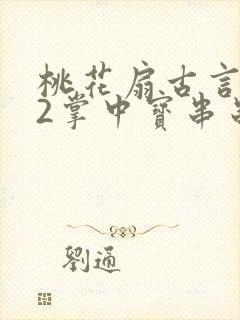 桃花扇古言
2掌中寶串
劉通